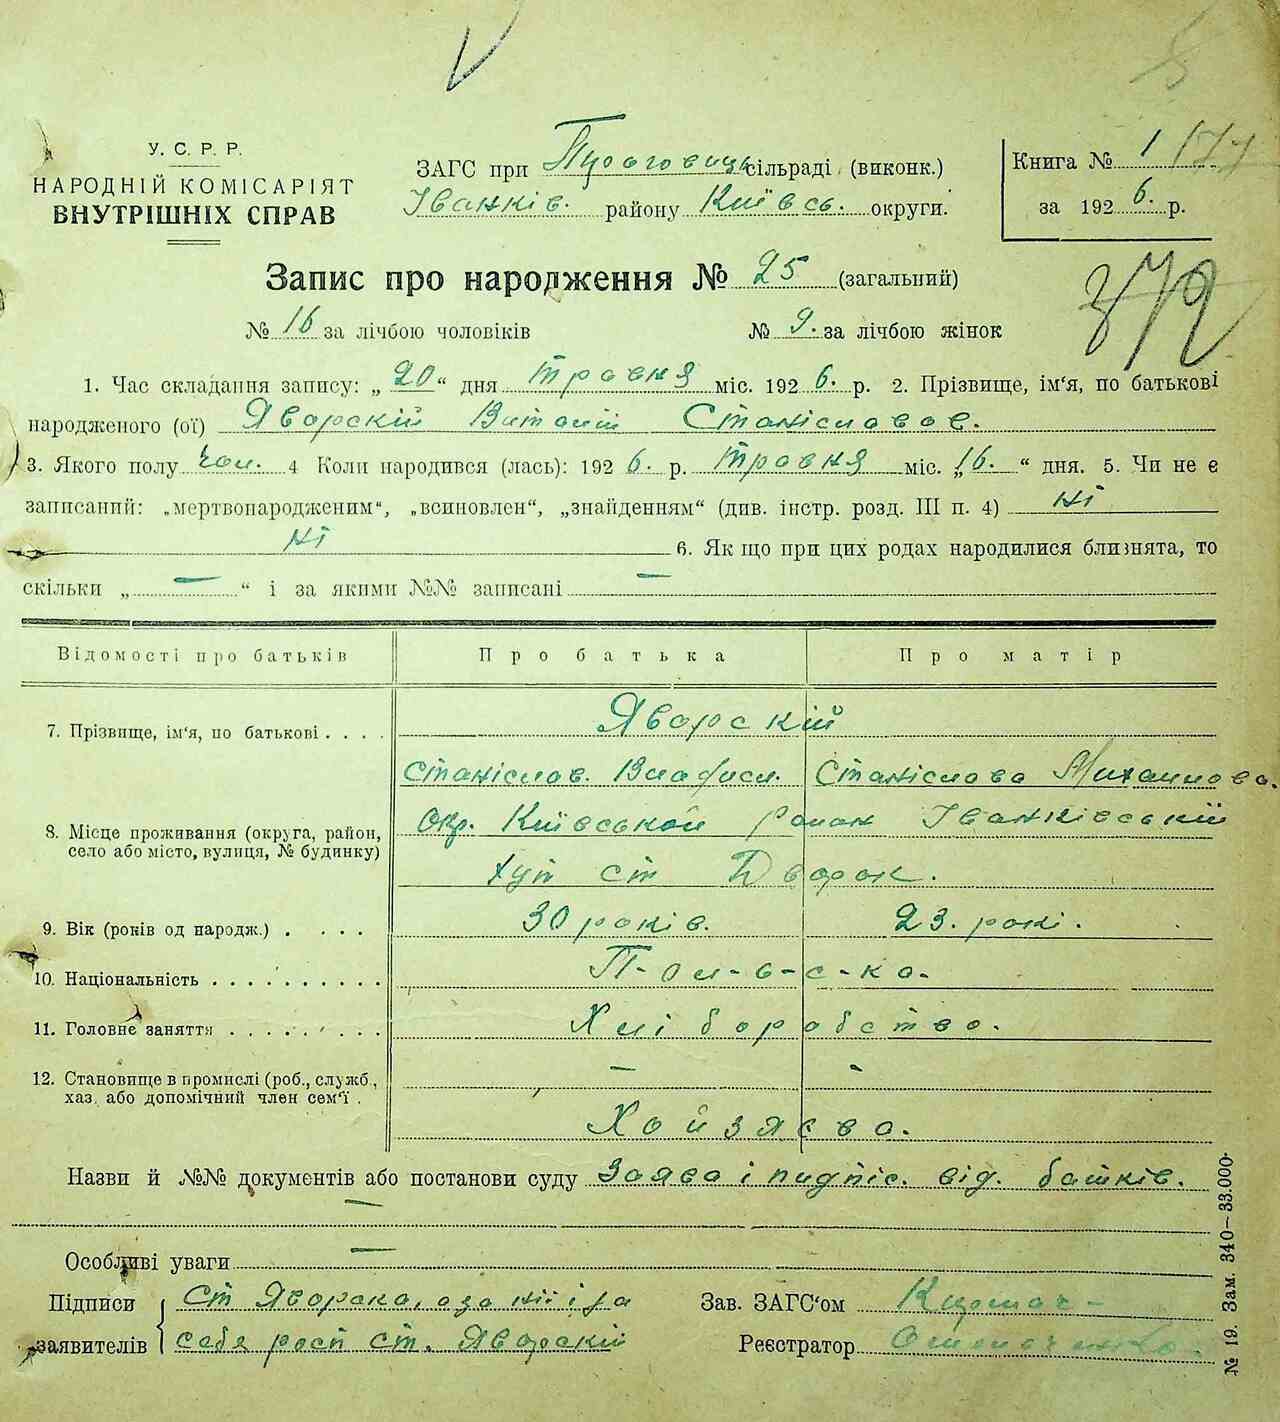 У. С. Р. Р.
НАРОДНІЙ КОМІСАРІЯТ
ВНУТРІШНІХ СПРАВ
ЗАГС при сільраді (виконк.)
Іванків. району Київсь. округи.
Книга № 1
за 1926 р.
Запис про народження № 25 (загальний)
372
№ 16 за лічбою чоловіків № 9. за лічбою жінок
1. Час складання запису: „20“ дня травня міс. 1926. р. 2. Прізвище, ім'я, по батькові
народженого (ої) Яворскій Виталій Станіславов.
3. Якого полу чол. 4 Коли народився (лась): 1926. р. травня міс. „16.“ дня. 5. Чи не є
записаний: „мертвонародженим“, „всиновлен“, „знайденням“ (див. інстр. розд. III п. 4) ні
ні 6. Як що при цих родах народилися близнята, то
скільки „ — “ і за якими №№ записані —
Відомості про батьків Про батька Про матір
7. Прізвище, ім'я, по батькові . . . . Яворскій
Станіслав. Владисл. Станіслава Михаилова.
8. Місце проживання (округа, район,
село або місто, вулиця, № будинку)
Окр. Київськой район Іванківській
хут ст Дворок.
9. Вік (років од народж.) . . . . 30 років. 23. рокі.
10. Національність . . . . . . . . . . П-ол-ь-с-ка.
11. Головне заняття . . . . . . . . Хліборобство.
12. Становище в промислі (роб., служб.,
хаз. або допомічний член сем'ї .
— -
Хойзяєва.
Назви й №№ документів або постанови суду Заява і пидпіс. від. батків.
—
Особливі уваги —
Підписи
заявителів
Ст Яворска, а за ній і за
себя росп ст. Яворскій
Зав. ЗАГС'ом
Реєстратор
№ 19. Зам. 340—33.000